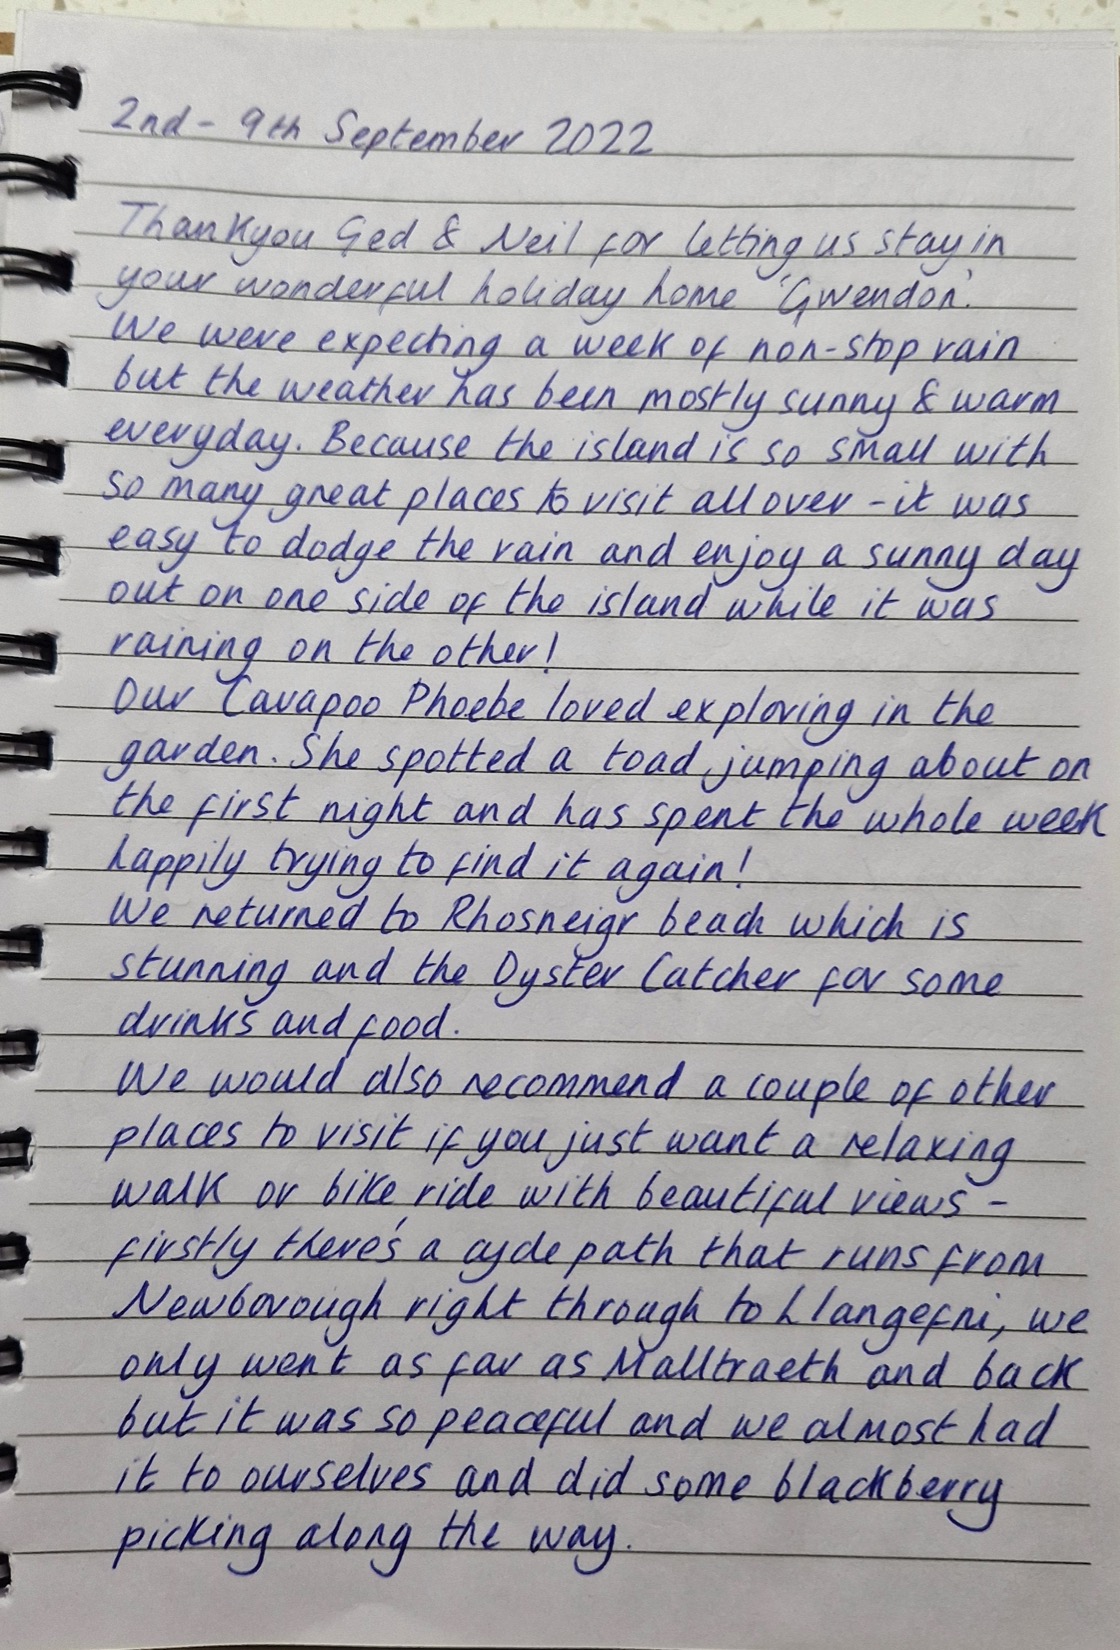 2nd - 9th September 2022
Thankyou Ged & Neil for letting us stay in
your wonderful holiday home 'Gwendon'.
We were expecting a week of non-stop rain
but the weather has been mostly sunny & warm
everyday. Because the island is so small with
so many great places to visit all over - it was
easy to dodge the rain and enjoy a sunny day
out on one side of the island while it was
raining on the other!
Our Cavapoo Phoebe loved exploring in the
garden. She spotted a toad jumping about on
the first night and has spent the whole week
happily trying to find it again!
We returned to Rhosneigr beach which is
stunning and the Oyster Catcher for some
drinks and food.
We would also recommend a couple of other
places to visit if you just want a relaxing
walk or bike ride with beautiful views -
firstly there's a cycle path that runs from
Newborough right through to Llangefni, we
only went as far as Malltraeth and back
but it was so peaceful and we almost had
it to ourselves and did some blackberry
picking along the way.